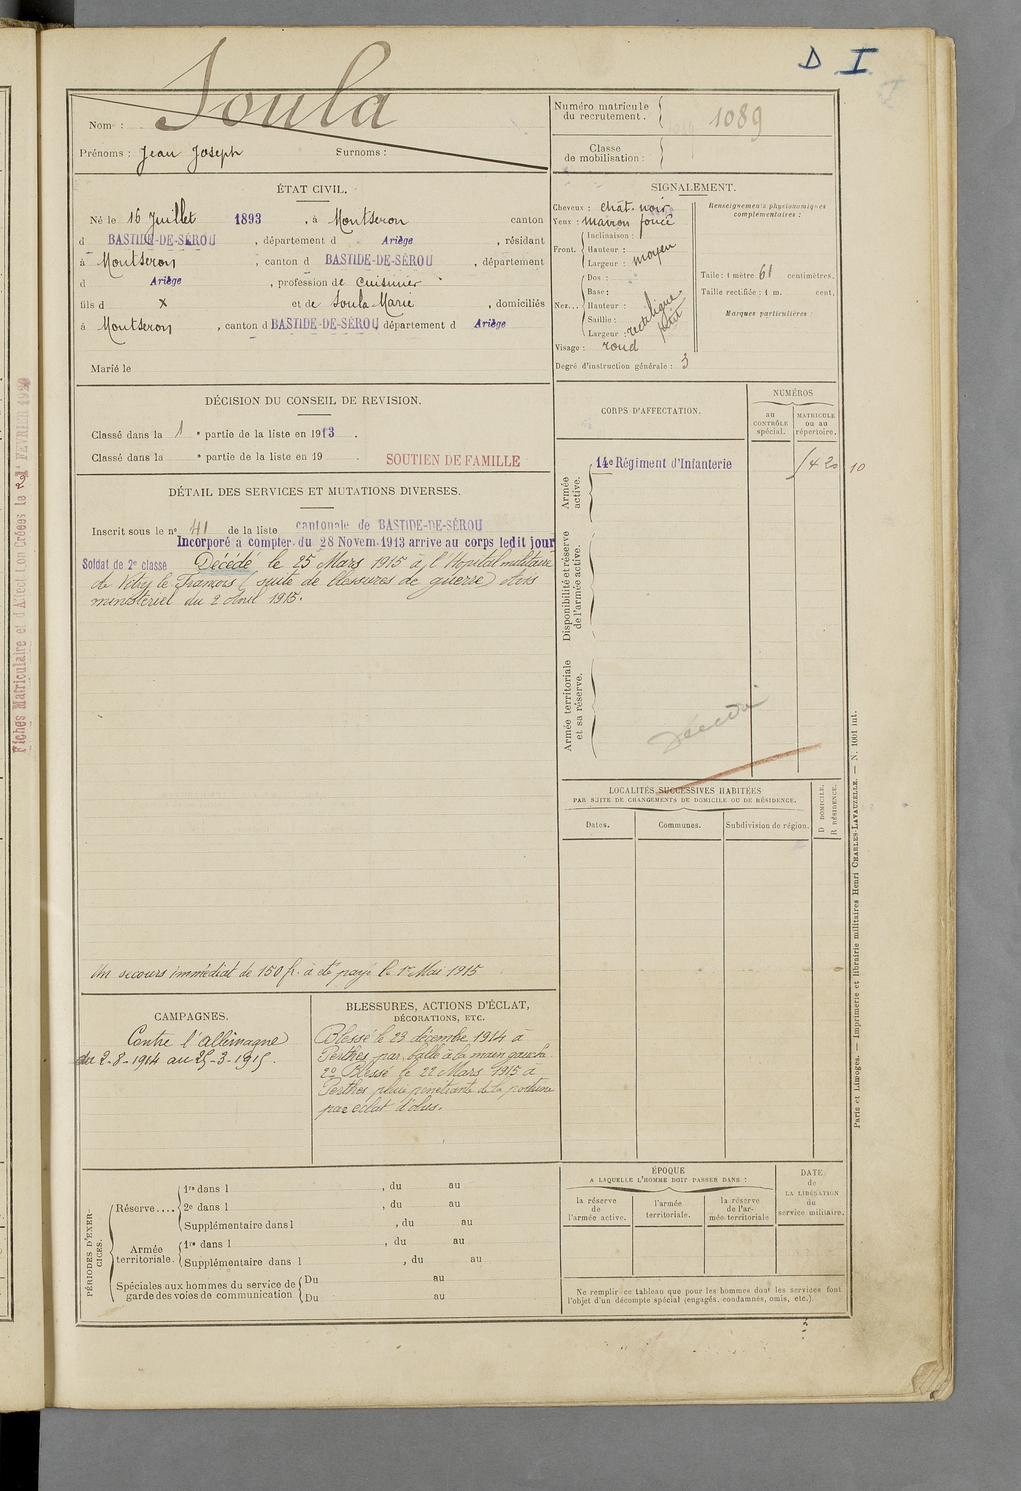 D I
Nom : Soula
Prénoms : Jean Joseph Surnoms :
Numéro matricule du recrutement. 1089
Classe de mobilisation :
ÉTAT CIVIL.
Né le 16 Juillet 1893, à Montseron canton
d BASTIDE-DE-SÉROU, département d Ariège, résidant
à Montseron, canton d BASTIDE-DE-SÉROU, département
d Ariège, profession de cuisinier
fils d x et de Soula Marie, domiciliés
à Montseron, canton d BASTIDE-DE-SÉROU département d Ariège
Marié le
SIGNALEMENT.
Cheveux : chat. noir
Yeux : marron foncé
Front. Inclinaison :
Hauteur :
Largeur : moyen
Nez... Dos :
Base :
Hauteur :
Saillie :
Largeur : rectiligne petit
Visage : rond
Degré d'instruction générale : 3
Renseignements physionomiques complémentaires :
Taille : 1 mètre 61 centimètres.
Taille rectifiée : 1 m. cent.
Marques particulières :
DÉCISION DU CONSEIL DE REVISION.
Classé dans la 1 e partie de la liste en 1913.
Classé dans la e partie de la liste en 19 .
SOUTIEN DE FAMILLE
DÉTAIL DES SERVICES ET MUTATIONS DIVERSES.
Inscrit sous le no 41 de la liste cantonale de BASTIDE-DE-SÉROU
Incorporé à compter du 28 Novem. 1913 arrivé au corps ledit jour
Soldat de 2e classe Décédé le 25 Mars 1915 à l'Hôpital militaire
de Vitry le François (suite de blessures de guerre) Avis
ministériel du 2 Avril 1915.
Un secours immédiat de 150 fr. a été payé le 1er Mai 1915
CORPS D'AFFECTATION.
NUMÉROS
au CONTRÔLE spécial.
MATRICULE ou au répertoire.
Armée active.
14e Régiment d'Infanterie
1420
10
Disponibilité et réserve de l'armée active.
Armée territoriale et sa réserve.
LOCALITÉS SUCCESSIVES HABITÉES
PAR SUITE DE CHANGEMENTS DE DOMICILE OU DE RÉSIDENCE.
Dates. Communes. Subdivision de région.
D DOMICILE. R RÉSIDENCE.
CAMPAGNES.
Contre l'allemagne
du 2-8-1914 au 25-3-1915.
BLESSURES, ACTIONS D'ÉCLAT,
DÉCORATIONS, ETC.
Blessé le 23 décembre 1914 à
Perthes par balle à la main gauche.
2o Blessé le 22 Mars 1915 à
Perthes plaie pénétrante de la poitrine
par éclat d'obus.
PÉRIODES D'EXERCICES.
Réserve.... 1re dans l , du au
2e dans l , du au
Supplémentaire dans l , du au
Armée territoriale. 1re dans l , du au
Supplémentaire dans l , du au
Spéciales aux hommes du service de garde des voies de communication
Du au
Du au
ÉPOQUE
A LAQUELLE L'HOMME DOIT PASSER DANS :
la réserve de l'armée active.
l'armée territoriale.
la réserve de l'armée territoriale
DATE de LA LIBÉRATION du service militaire.
Ne remplir ce tableau que pour les hommes dont les services font
l'objet d'un décompte spécial (engagés, condamnés, omis, etc.).
Paris et Limoges. — Imprimerie et librairie militaires Henri CHARLES-LAVAUZELLE. — N. 1001 int.